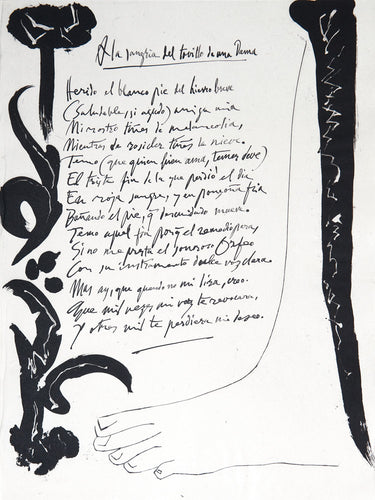 A la sangria del tovillo de una Dama
Herido el blanco pie del hierro breve
(Saludable, si agudo) amiga mia
Mi rostro tiñes de melancolia,
Mientras de rosicler tiñes la nieve.
Temo (que quien bien ama, temer deve)
El triste fin de la que perdió el dia
En roja sangre, y en ponçoña fria
Bañando el pie, q descuidado mueve.
Temo aquel fin porq el remedio para,
Si no me presta el sonoroso Orfeo
Con su instrumento dulce su voz clara.
Mas ay, que quando no mi lira, creo
Que mil vezes mi voz te revocara,
Y otras mil te perdiera mi deseo.